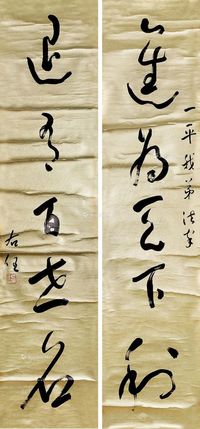 進為天下利
一平我弟法家
退有百世名
右任